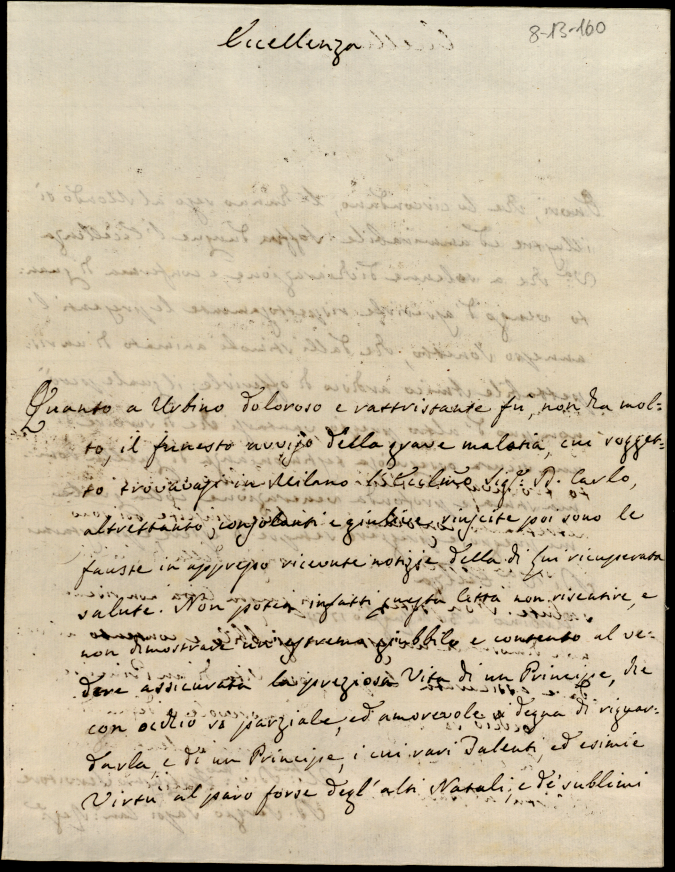 8-B-160
Eccellenza
Quanto a Urbino doloroso e rattristante fu, non ha mol-
to, il funesto avviso della grave malatia, cui sogget-
to trovavasi in Milano Sigr. D. Carlo,
altrettanto consolanti e giulive riuscite poi sono le
fauste in appresso ricevute notizie della di Lui ricuperata
salute. Non potea infatti questa Città non risentire, e
non dimostrare un estremo giubbilo e contento al ve-
dere assicurata la preziosa Vita di un Principe, che
con occhio sì parziale, ed amorevole si degna di riguar-
darla, e di un Principe, i cui rari Talenti, ed esimie
Virtù al paro forse degl'alti Natali, e de' sublimi